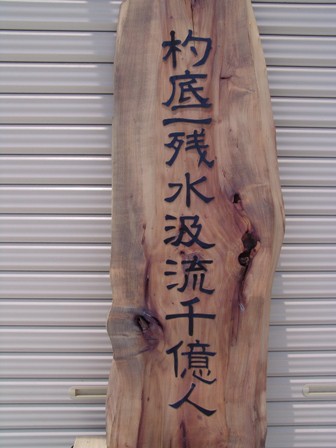 杓底一残水汲流千億人